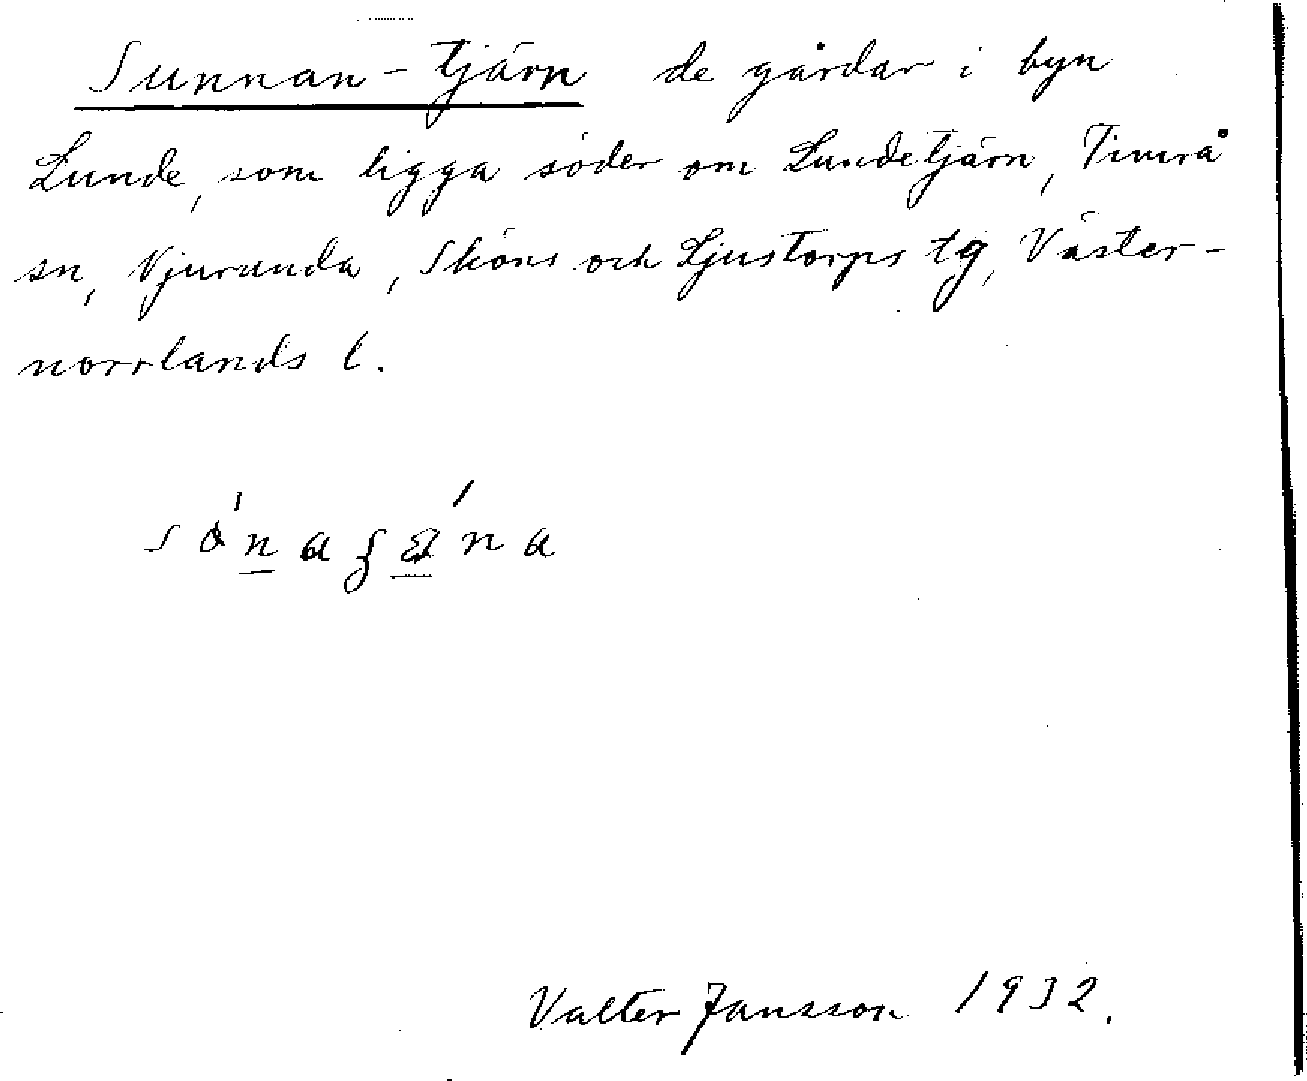 Sunnan-tjärn de gårdar i byn
Lunde, som ligga söder om Lundetjärn, Timrå
sn, Njurunda, Sköns och Ljustorps tg, Väster-
norrlands l.
Valter Jansson 1932.